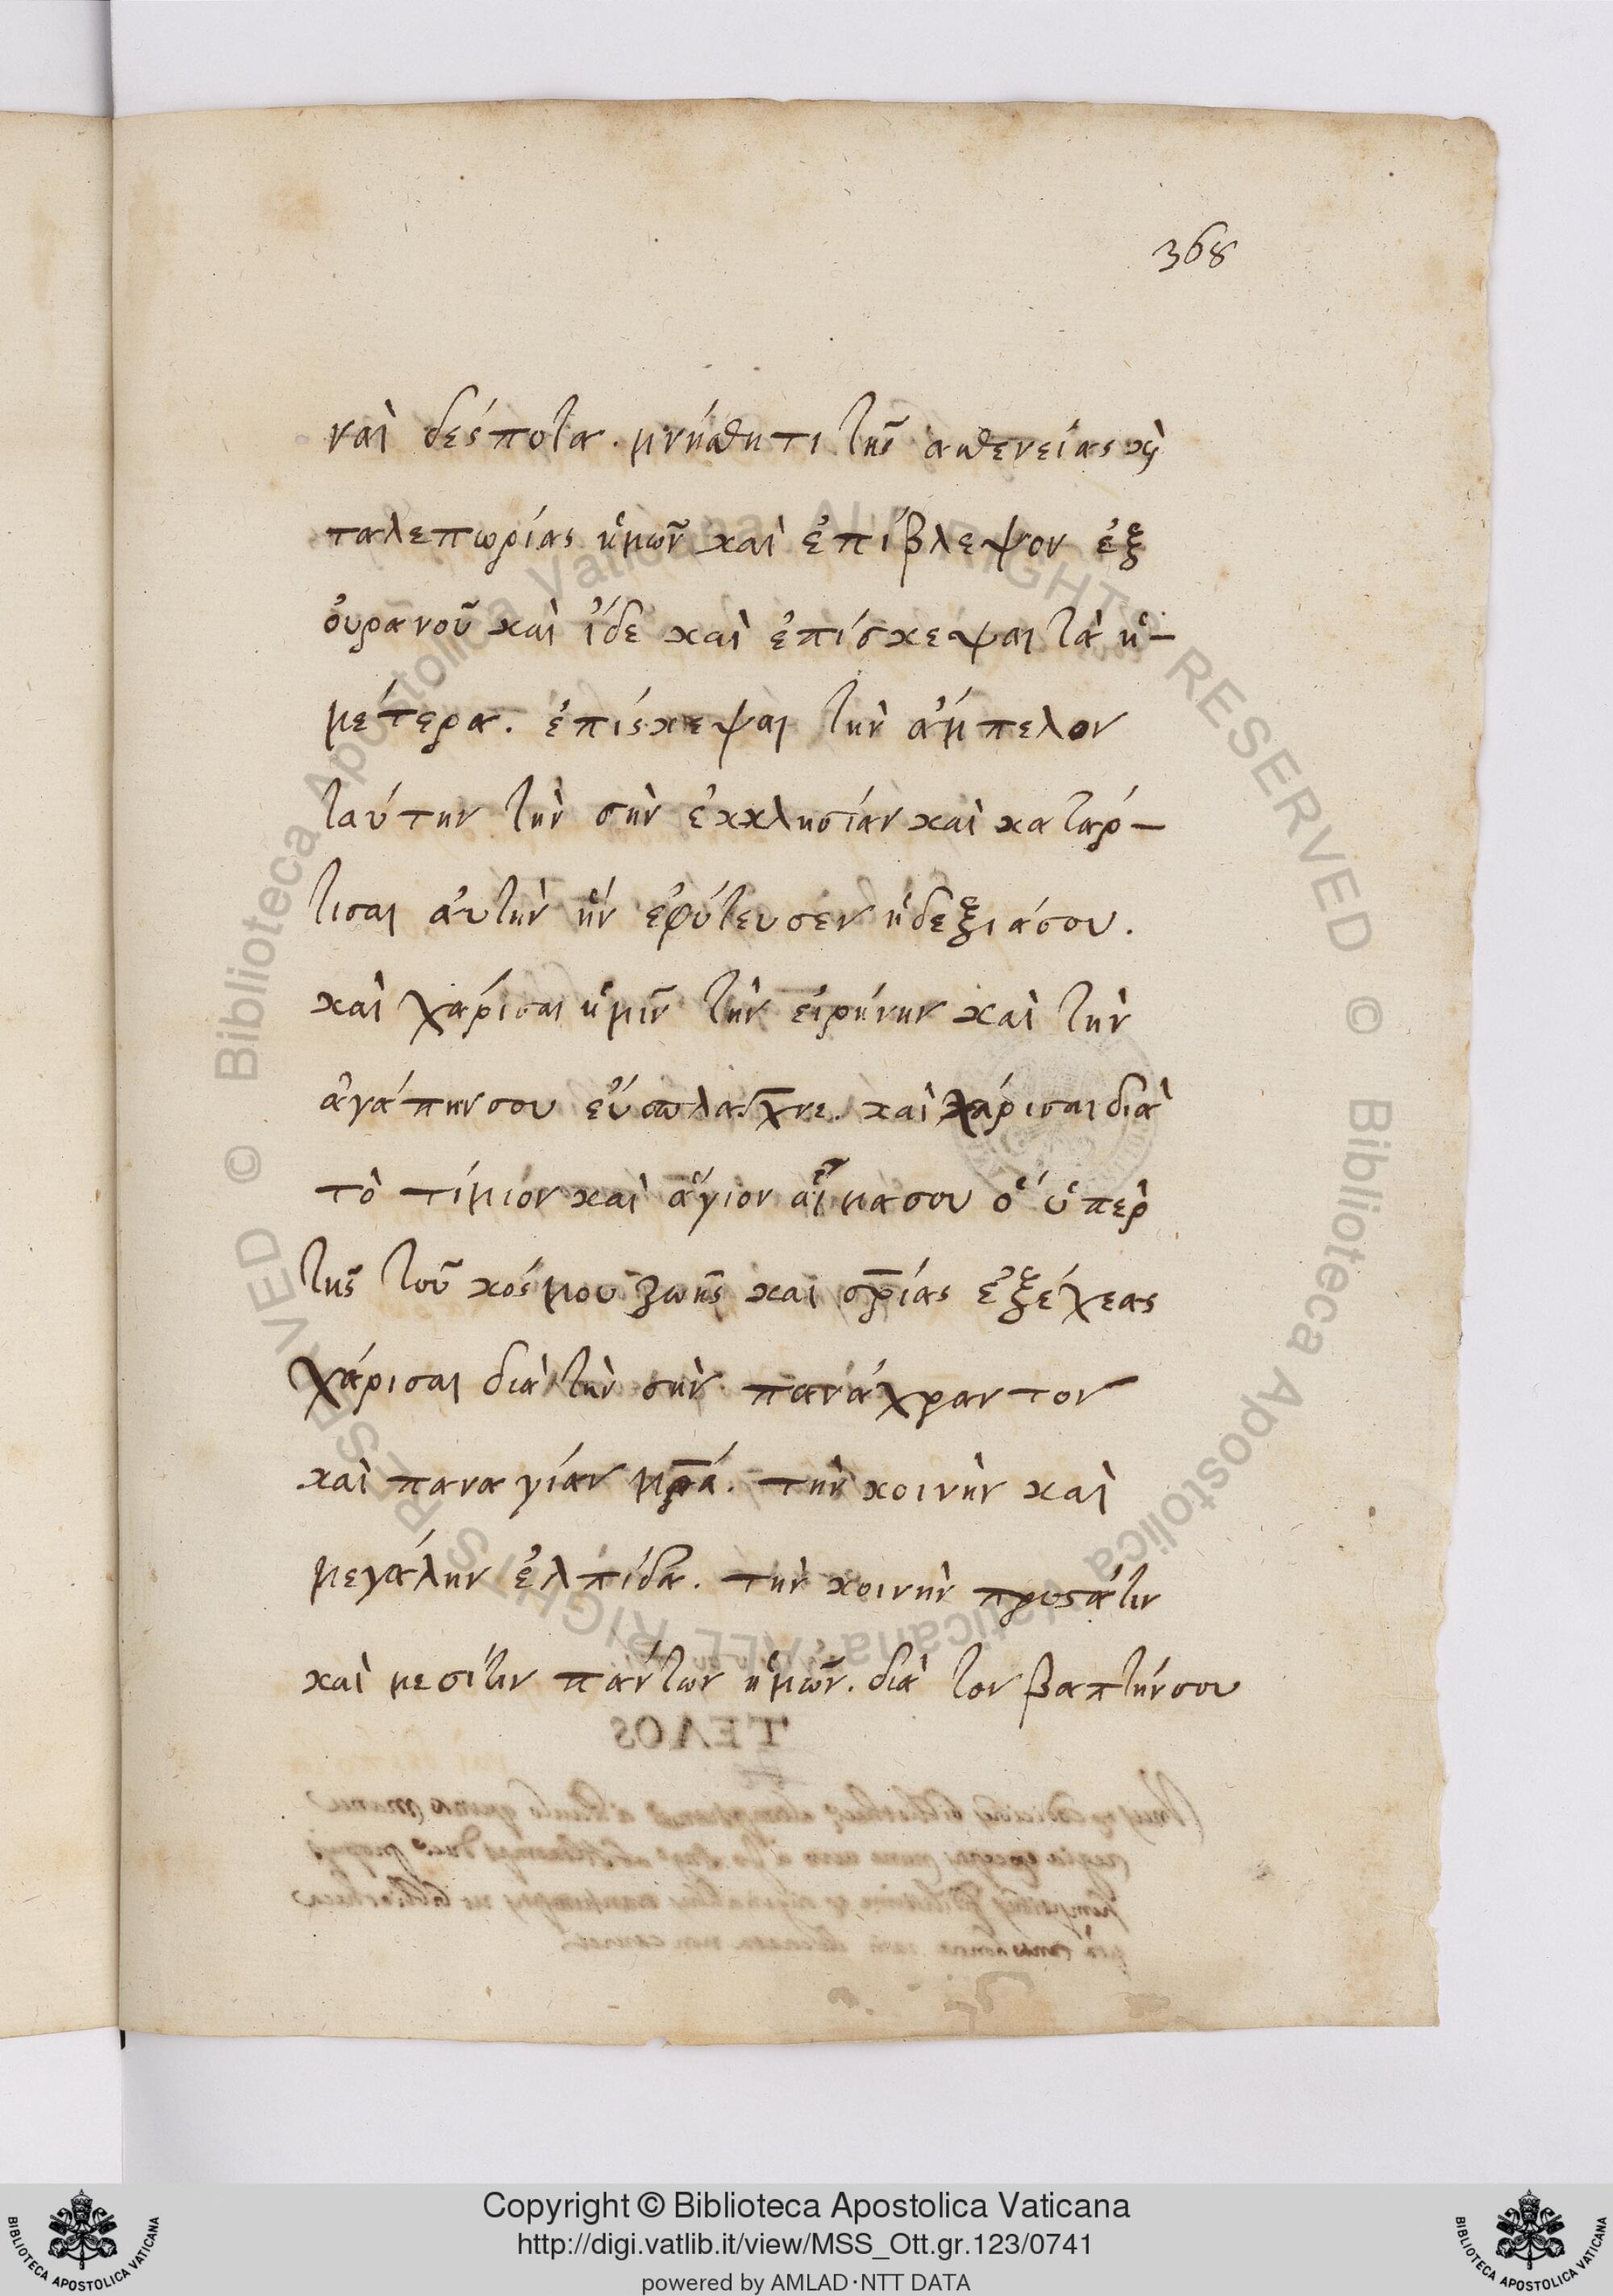 368
ναὶ δέσποτα. μνήσθητι τῆς ἀσθενείας καὶ
ταλεπωρίας ἡμῶν καὶ ἐπίβλεψον ἐξ
οὐρανοῦ καὶ ἴδε καὶ ἐπίσκεψαι τὰ ἡ-
μέτερα. ἐπίσκεψαι τὴν ἄμπελον
ταύτην τὴν σὴν ἐκκλησίαν καὶ κατάρ-
τισαι αὐτὴν ἣν ἐφύτευσεν ἡ δεξιά σου.
καὶ χάρισαι ἡμῖν τὴν εἰρήνην καὶ τὴν
ἀγάπην σου εὔσπλαγχνε. καὶ χάρισαι διὰ
τὸ τίμιον καὶ ἅγιον αἷμα σου ὃ ὑπὲρ
τῆς τοῦ κόσμου ζωῆς καὶ σρίας ἐξέχεας
χάρισαι διὰ τὴν σὴν πανάχραντον
καὶ παναγίαν μρά. τὴν κοινὴν καὶ
μεγάλην ἐλπίδα. τὴν κοινὴν προστάτιν
καὶ μεσίτιν πάντων ἡμῶν. διὰ τὸν βαπτήν σου
ΤΕΛΟΣ
© Biblioteca Apostolica Vaticana ALL RIGHTS RESERVED
© Biblioteca Apostolica Vaticana ALL RIGHTS RESERVED
Copyright © Biblioteca Apostolica Vaticana
http://digi.vatlib.it/view/MSS_Ott.gr.123/0741
powered by AMLAD·NTT DATA
BIBLIOTECA APOSTOLICA VATICANA
BIBLIOTECA APOSTOLICA VATICANA